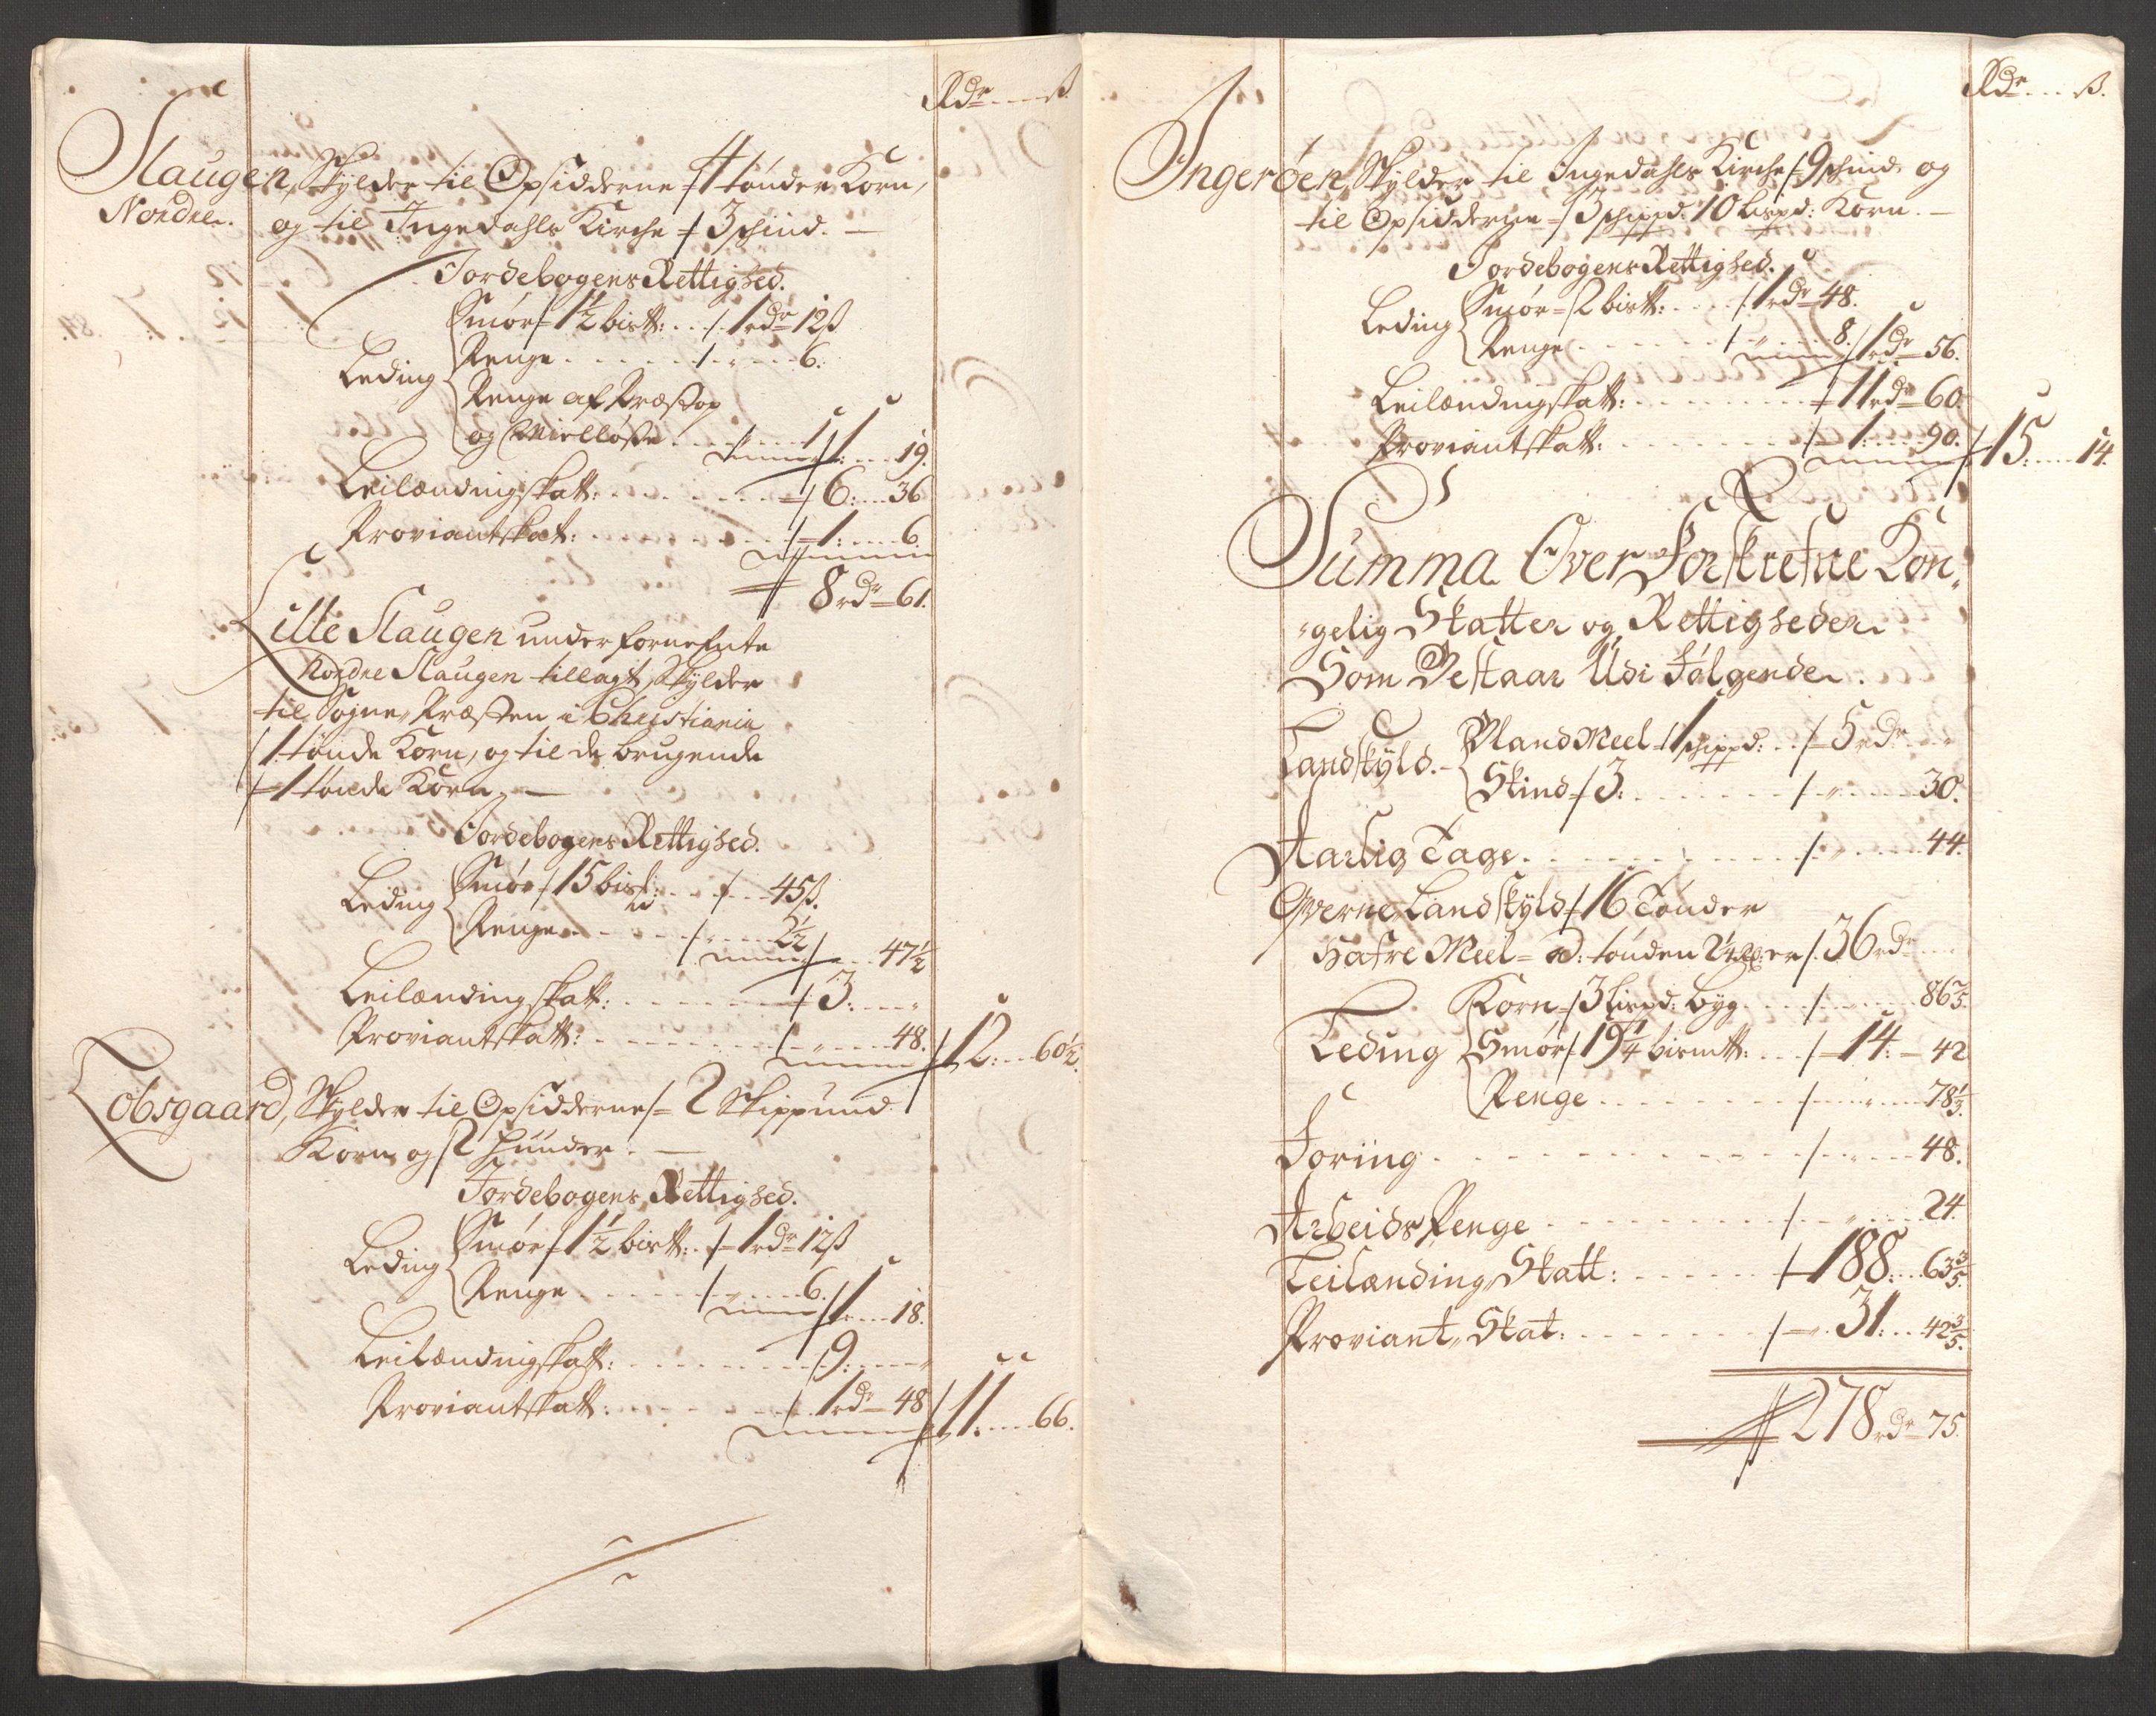 Rdr ß.
Haugen, Skylder til Opsidderne 4 tønder Korn,
Nordre. og til Ingedahls Kirche 3 schind.
Jordebogens Rettighed.
Smør 1½ bistt: 1 rdr 12ß
Leding Penge 6.
Penge af
og 1 1: 19.
Leilændingskatt: 6: 36
Proviantskat: 1: 6.
8 rdr 61.
Lille Haugen under fornefnte
Nordre Haugen tillagt, Skylder
til Sogne Præsten i Christiania
1 tønde Korn, og til de brugende
1 tønde Korn.
Jordebogens Rettighed.
Leding Smør 15 bisℓ: 45ß.
Penge 2½ 47½
Leilændingskatt: 3:
Proviantskatt: 48. 12: 60½.
Lobsgaard, Skylder til Opsidderne 2 Skippund
Korn og 2 huuder.
Jordebogens Rettighed.
Leding Smør 1½ bistt: 1 rdr 12ß
Penge 6. 1: 18.
Leilændingskatt: 9:
Proviantskatt: 1 rdr 48 11: 66.
Rdr ß.
Ingerøen, Skylder til Ingedahls Kirche 9 schind og
til Opsidderne 3 schippd: 10 lispd: Korn.
Jordebogens Rettighed.
Leding Smør 2 bistt: 1 rdr 48.
Penge 8. 1 rdr 56.
Leilændingskatt: 11 rdr 60
Proviantskatt: 1: 90. 15: 14.
Summa Over Forskrefne Kon-
gelig Skatter og Rettigheder
Som Bestaar Udi følgende.
Landskyld. Bland Meel 1 schippd: 5 rdr
Skind 3: 30.
Aarlig Tage 44.
Qverne Landskyld 16 Tønder
Hafre Meel a: tønden 2¼ rd: er 36 rdr
Korn 3 lispd: byg 86⅖.
Leding Smør 19¼ bismtt: 14: 42
Penge 78⅓.
Foring 48.
Arbeids Penge 24.
Leilændings Skatt: 188: 63⅗.
Proviant Skat: 31: 42⅗.
278 rdr 75.